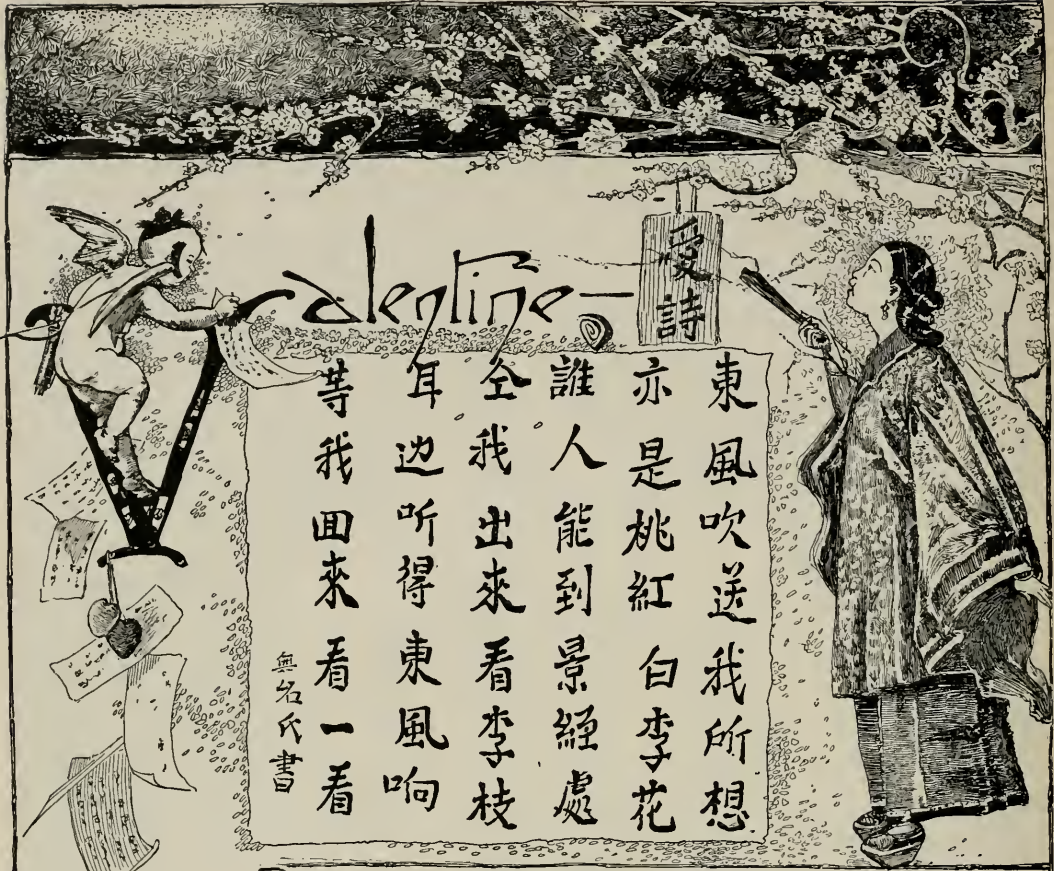 Valentine
愛詩
東風吹送我所想
亦是桃紅白李花
誰人能到景經處
仝我出來看李枝
耳边听得東風响
等我囬來看一看
無名氏書